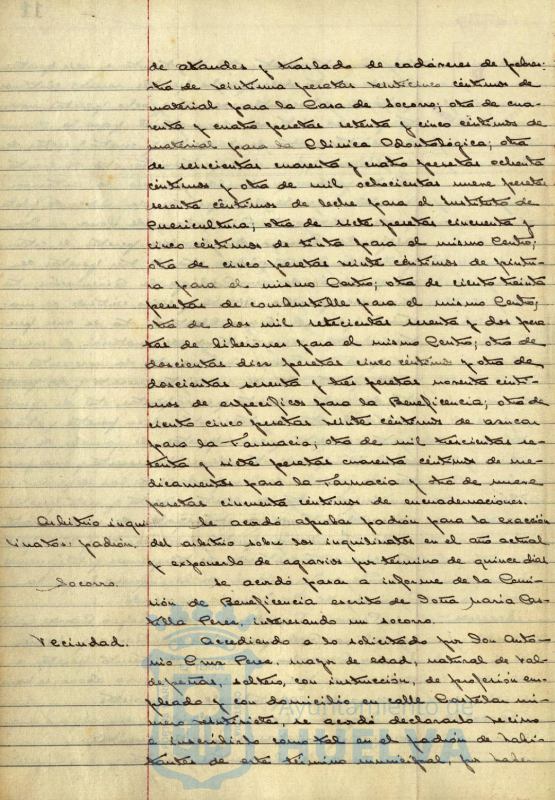 de ataudes y traslado de cadáveres de pobres;
otra de veintiuna pesetas veinticinco céntimos de
material para la Casa de Socorro; otra de cua-
renta y cuatro pesetas setenta y cinco céntimos de
material para la Clínica Odontológica; otra
de seiscientas cuarenta y cuatro pesetas ochenta
céntimos y otra de mil ochocientas nueve pesetas
sesenta céntimos de leche para el Instituto de
Puericultura; otra de siete pesetas cincuenta y
cinco céntimos de tinta para el mismo Centro;
otra de cinco pesetas veinte céntimos de pintu-
ra para el mismo Centro; otra de ciento treinta
pesetas de combustible para el mismo Centro;
otra de dos mil setecientas sesenta y dos pese-
tas de biberones para el mismo Centro; otra de
doscientas diez pesetas cinco céntimos y otra de
doscientas sesenta y tres pesetas noventa cénti-
mos de específicos para la Beneficencia; otra de
ciento cinco pesetas veinte céntimos de azucar
para la Farmacia; otra de mil trescientas se-
tenta y siete pesetas cuarenta céntimos de me-
dicamentos para la Farmacia y otra de nueve
pesetas cincuenta céntimos de encuadernaciones.
Arbitrio inqui- Se acordó aprobar padrón para la exacción
linatos: padrón. del arbitrio sobre los inquilinatos en el año actual
y exponerlo de agravios por término de quince días
Socorro. Se acordó pasar a informe de la Comi-
sión de Beneficencia escrito de Doña María Cas-
tilla Perez, interesando un socorro.
Vecindad. Accediendo a lo solicitado por Don Anto-
nio Cruz Perez, mayor de edad, natural de Val-
depeñas, soltero, con instrucción, de profesión em-
pleado y con domicilio en calle Castelar nú-
mero veintisiete, se acordó declararlo vecino
e inscribirlo como tal en el padrón de habi-
tantes de este término municipal, por haber
Ayuntamiento de
HUELVA